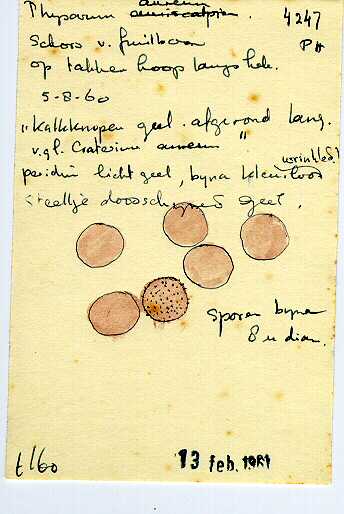 aureum
Physarum auriscalpium. 4247
Schors v. fruitboom PH
op takkenhoop langs hek.
5-8-60
"Kalkknopen geel. afgerond lang.
v.gl. Craterium aureum"
wrinkled!
peridium licht geel, byna kleurloos
steeltje doorschynend geel.
Sporen byna
8 u diam.
t/60
13 feb. 1981